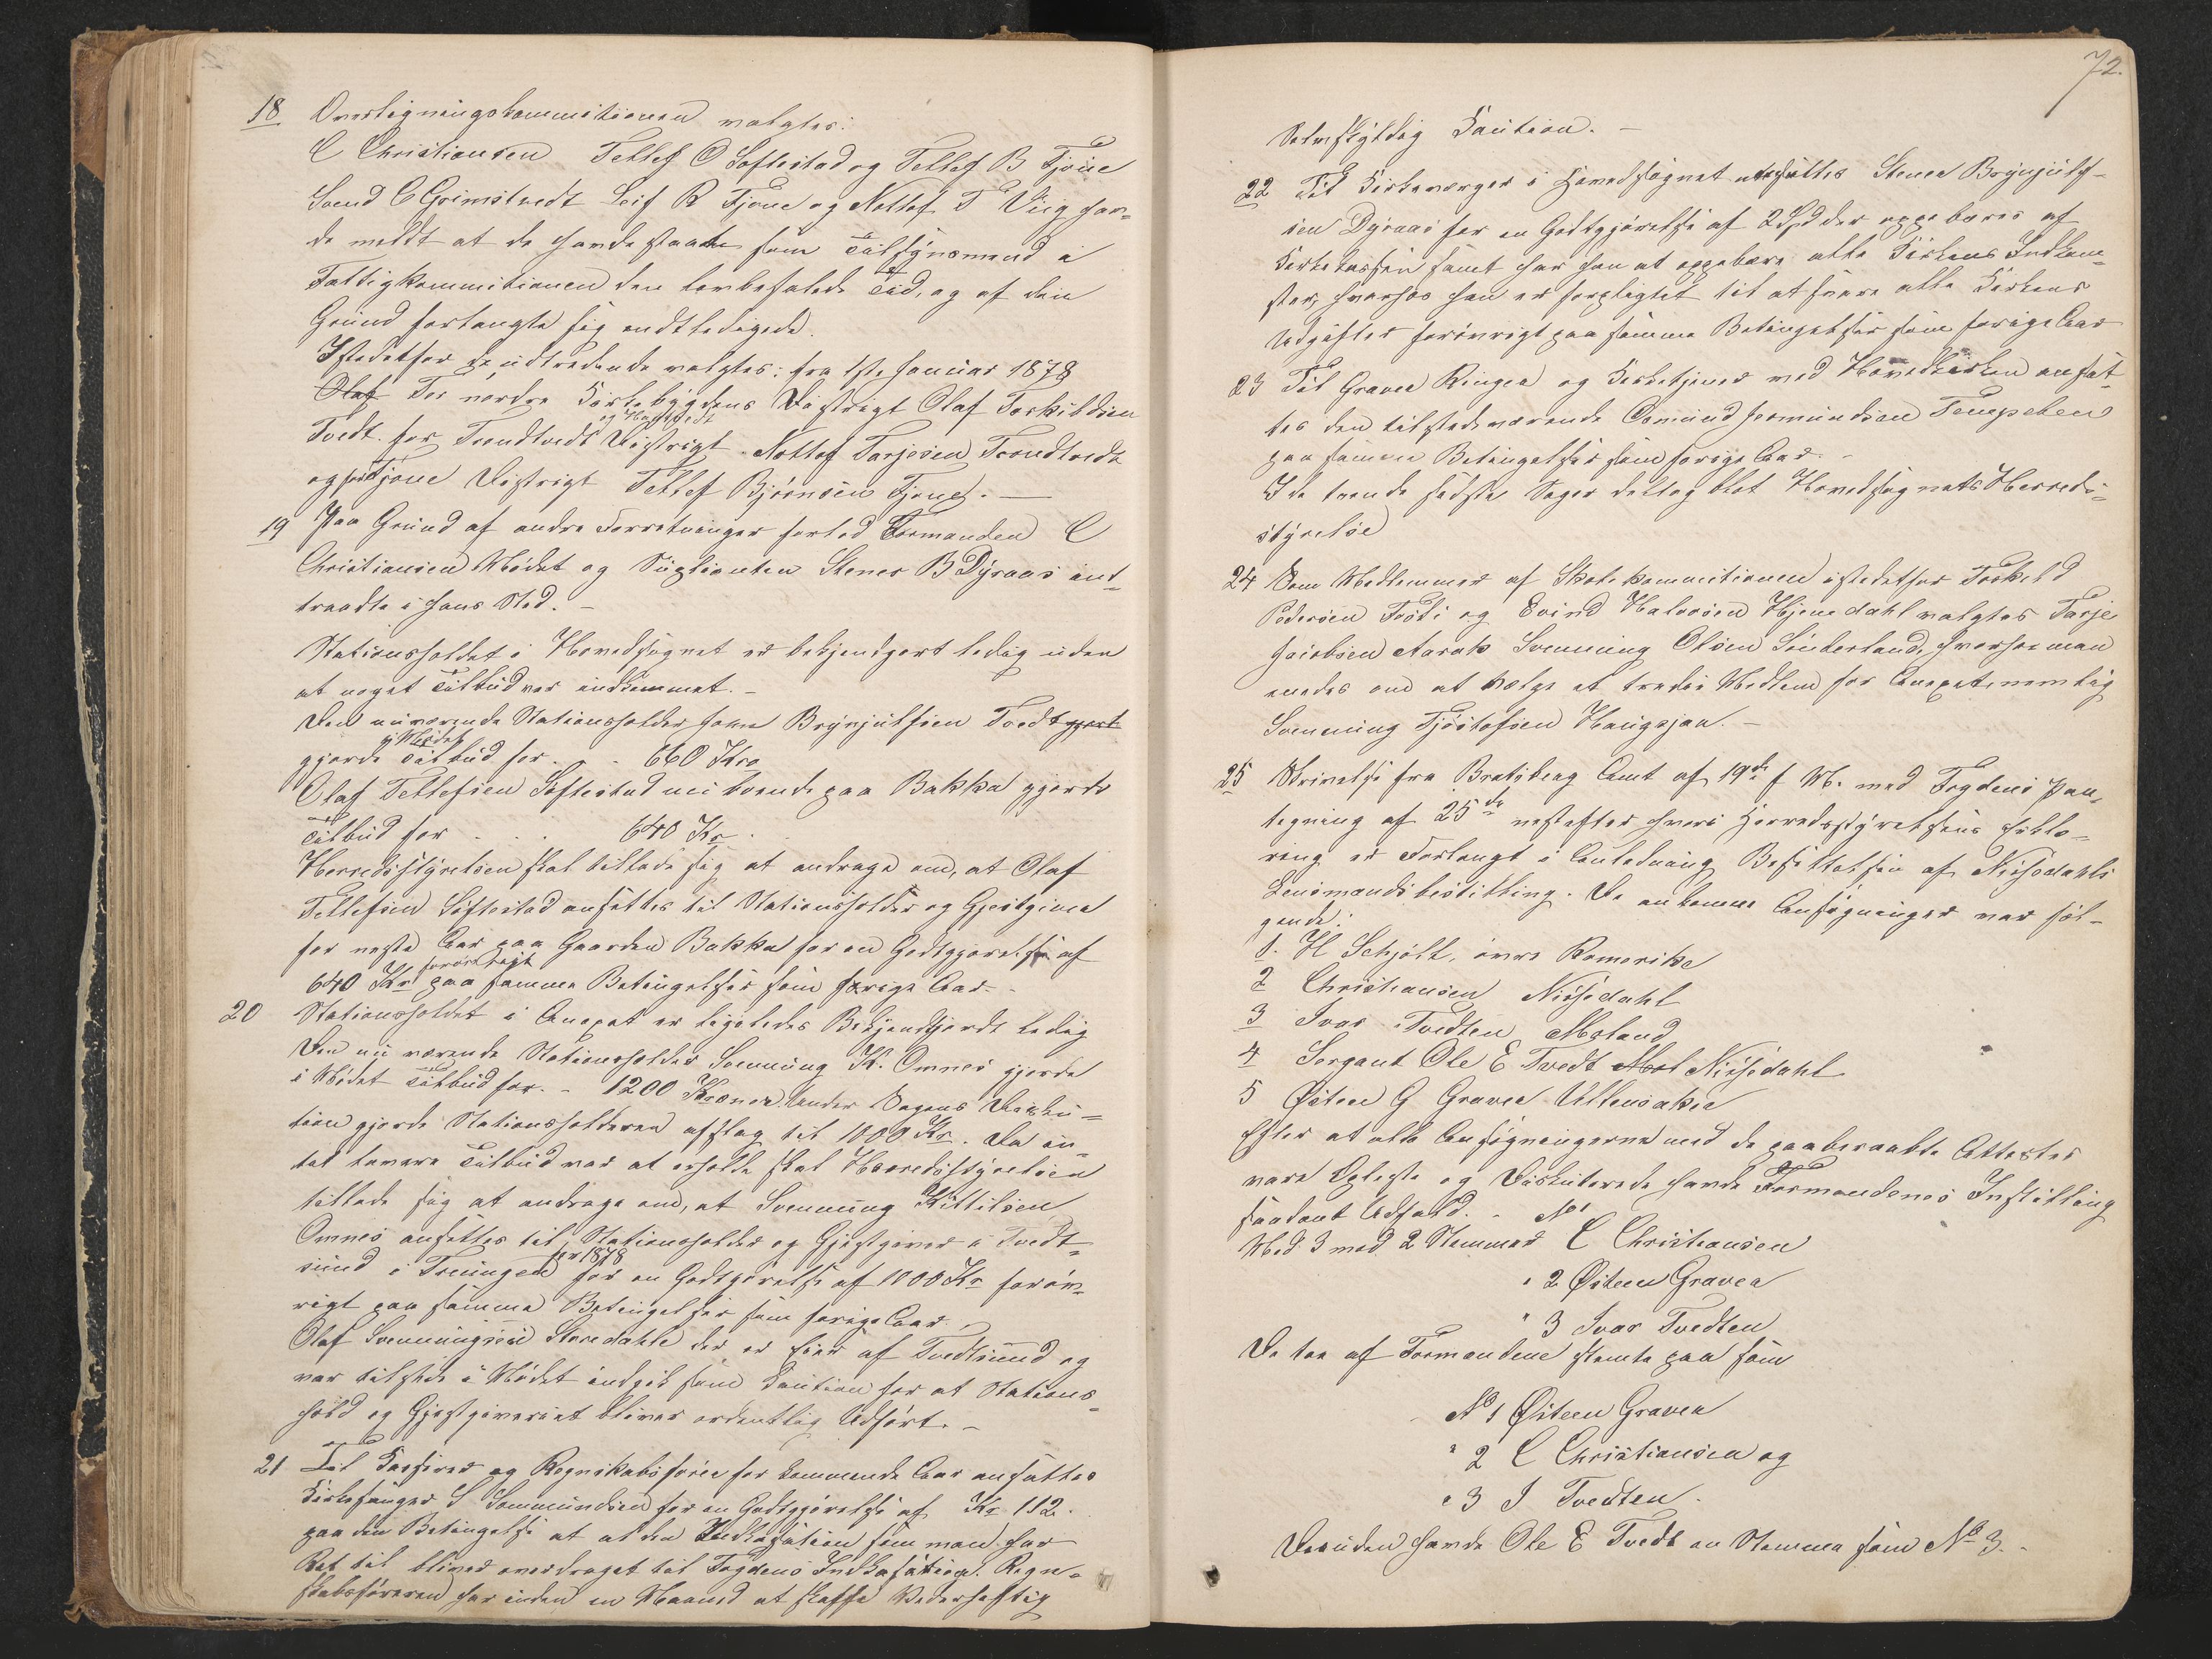 18 Overligningskommitionen valgtes:
C Christiansen Tellef O Softestad og Tellef B Fjone
Svend C Grimstvedt Leif R Fjone og Nottof T Viig hav-
de meldt at de havde staaet som Tilsynsmænd i
Fattigkommitionen den lovbefalede Tid, og af den
Grund forlangte sig endtledigede.
Istedetfor de udtredende valgtes: fra 1ste Januar 1878
Olaf For nordre Kirkebygdens Distrigt Olaf Torkildsen
Tvedt. for Trondtvedt Distrigt Nottof Tarjesen Trondtvedt
og for Fjone Distrigt Tellef Bjørnsen Fjone. —
19 Paa Grund af andre Forretninger forlod Formanden C
Christiansen Mødet og Suplianten Stener B Dyraas ind-
traadte i hans Sted. –
Stationsholdet i Hovedsognet er bekjendgjort ledig uden
at noget Tilbud var indkommet. –
Den nuværende Stationsholder John Brynjulfsen Tvedt gjort
i Mødet
gjorde Tilbud for . . 660 Kro
Olaf Tellefsen Softestad nu boende paa Bakka gjorde
Tilbud for . . . 640 Kr . .
Herredsstyrelsen skal tillade sig at andrage om, at Olaf
Tellefsen Softestad ansættes til Stationsholder og Gjestgiver
for neste Aar paa Gaarden Bakka for en Godtgjørelse af
forøvrigt
640 Kr paa samme Betingelser som forige Aar. –
20 Stationsholdet i Anexet er ligeledes Bekjendtgjordt ledig
Den nu værende Stationsholder Svenning K. Omnes gjorde
i Mødet Tilbud for. – 1200 Kroner. Under Sagens Disku-
tion gjorde Stationsholderen afslag til 1000 Kr. Da in-
tet lavere Tilbud var at erholde skal Herredsstyrelsen
tillade sig at andrage om, at Svenning Kittilsen
Omnes ansættes til Stationsholder og Gjestgiver i Tvedt-
for 1878
sund i Treungen for en Godtgjørelse af 1000 Kr forøv-
rigt paa samme Betingelser som forige Aar. –
Olaf Svenningsen Storedahle der er Eier af Tvedtsund og
var tilstede i Mødet indgik som Kaution for at Stations-
hold og Gjestgiveriet bliver ordentlig Udført. –
21 Til Kasserer og Regnskabsfører for kommende Aar ansattes
Kirkesanger S Sommundsen for en Godtgjørelse af Kr 112.
paa den Betingelse at at den Indkasation som man har
Ret til bliver overdraget til Fogdens Indkasation. Regn-
skabsføreren har inden en Maaned at skaffe Vederheftig
72.
Selvskyldig Kaution. –
22 Til Kirkeværger i Hovedsognet ansættes Stener Brynjulf-
sen Dyraas for en Godtgjørelse af 2 Spd der oppebæres af
Kirkekassen samt har han at oppebære alle Kirkens Indkom-
ster, hvorhos han er forpligtet til at svare alle Kirkens
Udgifter forøvrigt paa samme Betingelser som forige Aar
23 Til Graver Ringer og Kirketjener ved Hovedkirken ansæt-
tes den tilstedeværende Osmund Jermundsen Tempelen
paa samme Betingelser som forige Aar. –
I de tvende sidste Sager deltog blot Hovedsognets Herreds-
styrelse
24 Som Medlemmer af Skolekommitionen istedetfor Torkeld
Pedersen Trøti og Evind Halvorsen Hjemdahl valgtes Tarje
Jacobsen Aarak Svenning Olsen Sønderland, hvorhos man
enedes om at vælge et tredie Medlem for Anexet, nemlig
Svenning Tjøstofsen Haugsjaa. –
25 Skrivelse fra Bratsberg Amt af 19de f M. med Fogdens Paa-
tegning af 25de nestefter hvori Herredsstyrelsens Erklæ-
ring er Forlangt i Anledning Besættelsen af Nissedahls
Lensmandsbestilling. De ankomne Ansøgninger var føl-
gende:
1. H Schjølt, øvre Romerike
2 Christiansen Nissedahl
3 Ivar Tvedten Moland
4 Sergant Ole E Tvedt Mol Nissedahl
5 Østen G Graver Ullensaker
Efter at alle Ansøgningerne med de paaberaabte Attester
vare Oplæste og Diskuterede havde Formandenes Instilling
saadant Udfald. –
Med 3 mod 2 Stemmer No 1 C Christiansen
" 2 Østen Graver
" 3 Ivar Tvedten
De toe af Formandene stemte paa som
No 1 Østen Graver
" 2 C Christiansen og
" 3 I Tvedten.
Desuden havde Ole E Tvedt en Stemme som No 3. –